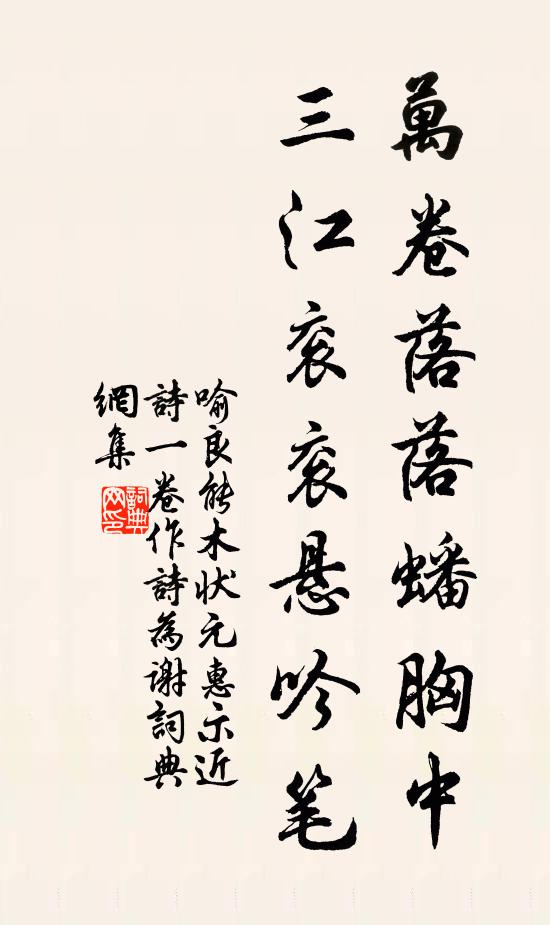 萬卷落落蟠胸中
三江袞袞悬吟笔
喻良能木状元惠示近
詩一卷作詩為谢詞典
網集
詞典
网印